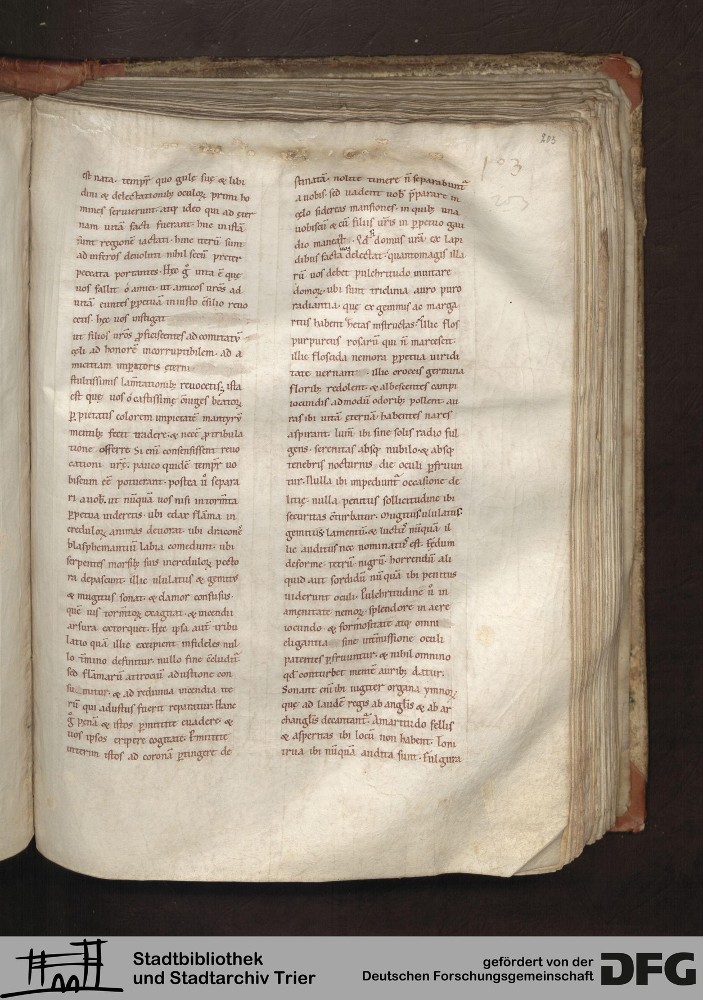 203
103
203
est nata. tempr̄ quo gulę suę & libi
dini & delectationib; oculoꝝ primi ho
mines seruierunt. atq; ideo qui ad ęter
nam uitā facti fuerant. hinc in istā
sunt regionē iactati. hinc iterū sunt
ad inferos deuoluti. nihil secū preter
peccata portantes. Hęc ḡ uita ē que
uos fallit o amici. ut amicos urōs ad
uitā euntes ppetuā iniusto c̄silio reuo
cetis. hęc uos instigat
ut filios urōs pficiscentes ad comitatū
cęli. ad honorē incorruptibilem. ad a
micitiam imperatoris ęterni
stultissimis lam̄tationib; reuocetis. ista
est que uos o castissimę c̄iuges beatoꝝ
p pietatis colorem impietatē martyrū
mentib; fecit uadere. & necē p tribula
tione offerre. Si eni consensissent reuo
cationi urę. pauco quidē tempr̄ uo
biscum eē potuerant. postea ū separa
ri a uob. ut nūquā uos nisi in torm̄ta
ppetua uideretis. ubi edax flāma in
credulorꝝ animas deuorat. ubi draconē
blasphemantiū labia comedunt. ubi
serpentes morsib; suis incredulorꝝ pecto
ra depascunt. illic ululatus & gemitus
& mugitus sonat. & clamor confusus.
quē uis tormtoꝝ exagitat. & incendii
arsura extorquet. Hęc ipsa aut̄ tribu
latio quā illic excipient infideles nul
lo t̄mino definitur. nullo fine c̄cluditᵘ.
sed flāmarū atrociū adustione con
sumitur. & ad rediuiua incendia ite
rū qui adustus fuerit reparatur. Hanc
ḡ pęnā & istos pmittite euadere. &
uos ipsos eripere cogitate. Pmittite
interim istos ad coronā ptingere de
stinatā. nolite timere n̄ separabuntᵘ
a uobis. sed uadent uob ppararare in
cęlo sidereas mansiones. in quib; una
uobiscū & cū filiis uris in ppetuo gau
dio maneāt. Qd̄ si domus urā ex lapi
dibus facta uos delectat. quantomagis illa
rū uos debet pulchritudo inuitare
domoꝝ. ubi sunt triclinia auro puro
radiantia. que ex gemmis ac marga
ritis habent c̄etas instructas. Illic flos
purpureus rosarū qui n̄ marcescit.
illic floscida nemora ppetua uiridi
tate uernant. illic croceis germina
florib; redolent. & albescentes campi
iocundis admodū odorib; pollent. au
ras ibi uitā ęternā habentes nares
aspirant. lumē ibi sine solis radio ful
gens. serenitas absq; nubilo. & absq;
tenebris nocturnis die oculi pfruun
tur. Nulla ibi impeditᵘ occasione de
litię. nulla penitus sollicitudine ibi
securitas c̄turbatur. Mugitus ululatus
gemitus lamentū. & luctus nūquā il
lic auditus nec nominatus est. Fędum
deforme. tetrū nigrū. horrendū ali
quid aut sordidū nūquā ibi penitus
uiderunt oculi. Pulchritudinē ū in
amenitate nemoꝝ. splendore in aere
iocundo. & formositate atq; omni
elegantia sine int̄missione oculi
patentes pfruuntur. & nihil omnino
qd conturbet mentē aurib; datur.
Sonant eni ibi iugiter organa ymnoꝝ
que ad laudē regis ab anglis & ab ar
changlis decantantᵘ. Amaritudo fellis
& asperitas ibi locū non habent. Toni
trua ibi nūquā audita sunt. Fulgura
Stadtbibliothek
und Stadtarchiv Trier
gefördert von der
Deutschen Forschungsgemeinschaft
DFG